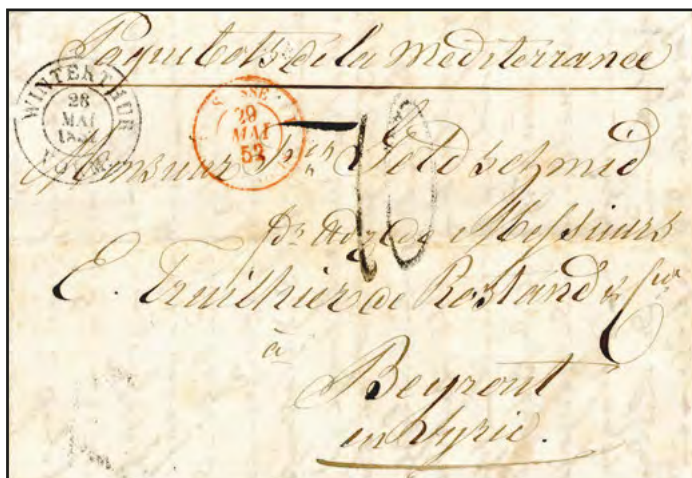 Paquebots de la Mediterranée
WINTERTHUR
28
MAI
1852
SSE
29
MAI
52
10
Monsieur Goldschmid
Messieurs
E. Truilhier de Rostand & Cie
à
Beyrout
en Syrie.